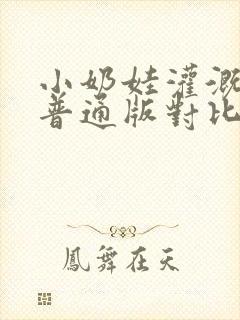 小奶娃灌溉
普通版對比
鳳舞在天